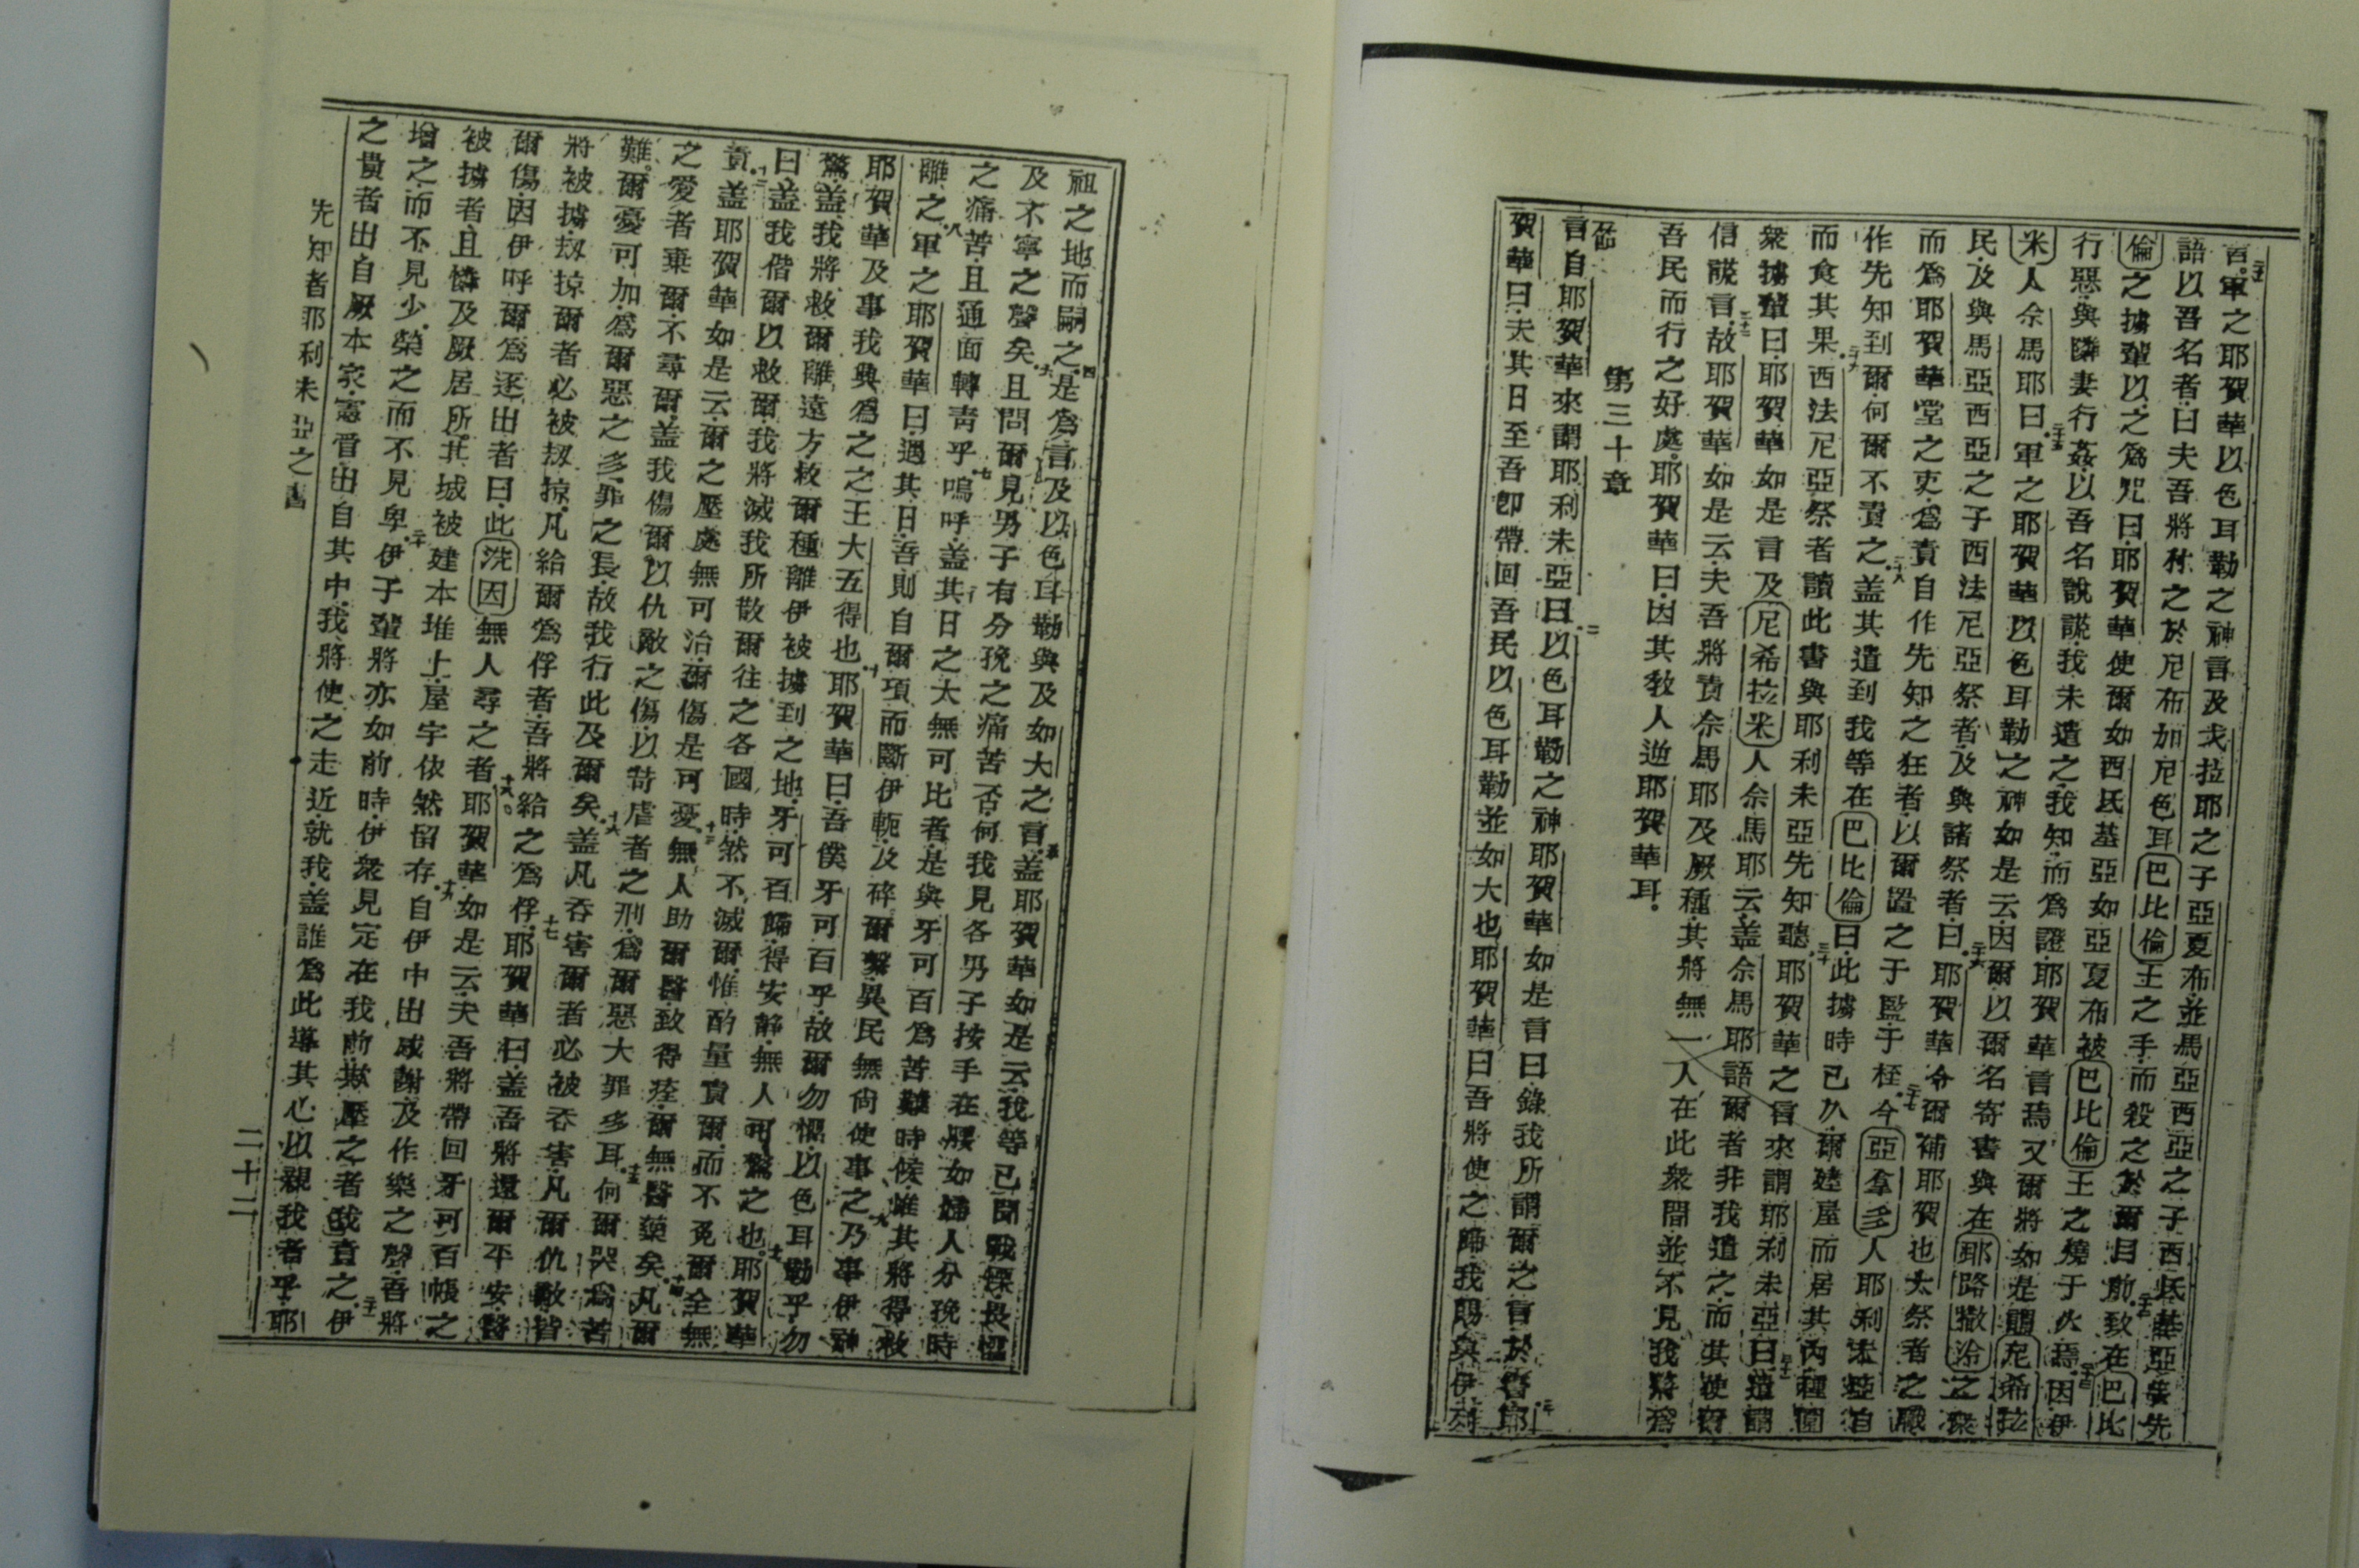 言。二十一軍之耶賀華以色耳勒之神言及戈拉耶之子亞夏布並馬亞西亞之子西氐華亞先
語以吾名者曰夫吾將付之於尼布加尼色耳巴比倫王之手而殺之於爾目前。二十二致在巴比
倫之擄輩以之爲咒曰耶賀華使爾如西氐基亞如亞夏布被巴比倫王之燒于火焉。二十三因伊
行惡與隣妻行姦以吾名說謊我未遣之我知而爲證耶賀華言焉。二十四又爾將如是謂尼希拉
米人佘馬耶曰。二十五軍之耶賀華以色耳勒之神如是云因爾以爾名寄書與在耶路撒冷之衆
民及與馬亞西亞之子西法尼亞祭者及與諸祭者曰。二十六耶賀華令爾補耶賀也大祭者之職
而爲耶賀華堂之吏爲責自作先知之狂者以爾置之于監于桎。二十七今亞拿多人耶利未亞自
作先知到爾何爾不責之。二十八蓋其遣到我等在巴比倫曰此擄時已久爾建屋而居其內種園
而食其果。二十九西法尼亞祭者讀此書與耶利未亞先知聽。三十耶賀華之言來謂耶利未亞曰。三十一遣謂
衆擄輩曰耶賀華如是言及尼希拉米人佘馬耶云蓋佘馬耶語爾者非我遣之而其使爾
信謊言。三十二故耶賀華如是云夫吾將責佘馬耶及厥種其將無一人在此衆間並不見我將爲
吾民而行之好處耶賀華曰因其敎人逆耶賀華耳。
第三十章
言自耶賀華來謂耶利未亞曰。二以色耳勒之神耶賀華如是言曰錄我所謂爾之言於書。三耶
賀華曰夫其日至吾卽帶回吾民以色耳勒並如大也耶賀華曰吾將使之歸我賜與伊列
祖之地而嗣之。四是爲言及以色耳勒與及如大之言。五蓋耶賀華如是云我等已聞戰慄畏懼
及不寧之聲矣。六且問爾見男子有分挽之痛苦否何我見各男子按手在腰如婦人分挽時
之痛苦且通面轉靑乎。七嗚呼蓋其日之大無可比者是與牙可百爲苦難時候惟其將得救
離之。八軍之耶賀華曰遇其日吾則自爾項而斷伊軛及碎爾繫異民無尙使事之。九乃事伊神
耶賀華及事我興爲之之王大五得也。十耶賀華曰吾僕牙可百乎故爾勿懼以色耳勒乎勿
驚蓋我將救爾離遠方救爾種離伊被擄到之地牙可百歸得安靜無人可驚之也。十一耶賀華
曰蓋我偕爾以救爾我將滅我所散爾往之各國時然不滅爾惟酌量責爾而不免爾全無
責。十二蓋耶賀華如是云爾之壓處無可治爾傷是可憂。十三無人助爾醫致得痊爾無醫藥矣。十四凡爾
之愛者棄爾不尋爾蓋我傷爾以仇敵之傷以苛虐者之刑爲爾惡大罪多耳。十五何爾哭爲苦
難爾憂可加爲爾惡之多罪之長故我行此及爾矣。十六蓋凡吞害爾者必被吞害凡爾仇敵皆
將被擄刼掠爾者必被刼掠凡給爾爲俘者吾將給之爲俘。十七耶賀華曰蓋吾將還爾平安醫
爾傷因伊呼爾爲逐出者曰此洗因無人尋之者。十八耶賀華如是云夫吾將帶回牙可百帳之
被擄者且憐及厥居所其城被建本堆上屋宇依然留存。十九自伊中出感謝及作樂之聲吾將
增之而不見少榮之而不見卑。二十伊子輩將亦如前時伊衆見定在我前欺壓之者我責之。二十一伊
之貴者出自厥本家憲晋出自其中我將使之走近就我蓋誰爲此導其心以親我者乎耶
先知者耶利未亞之書
二十二